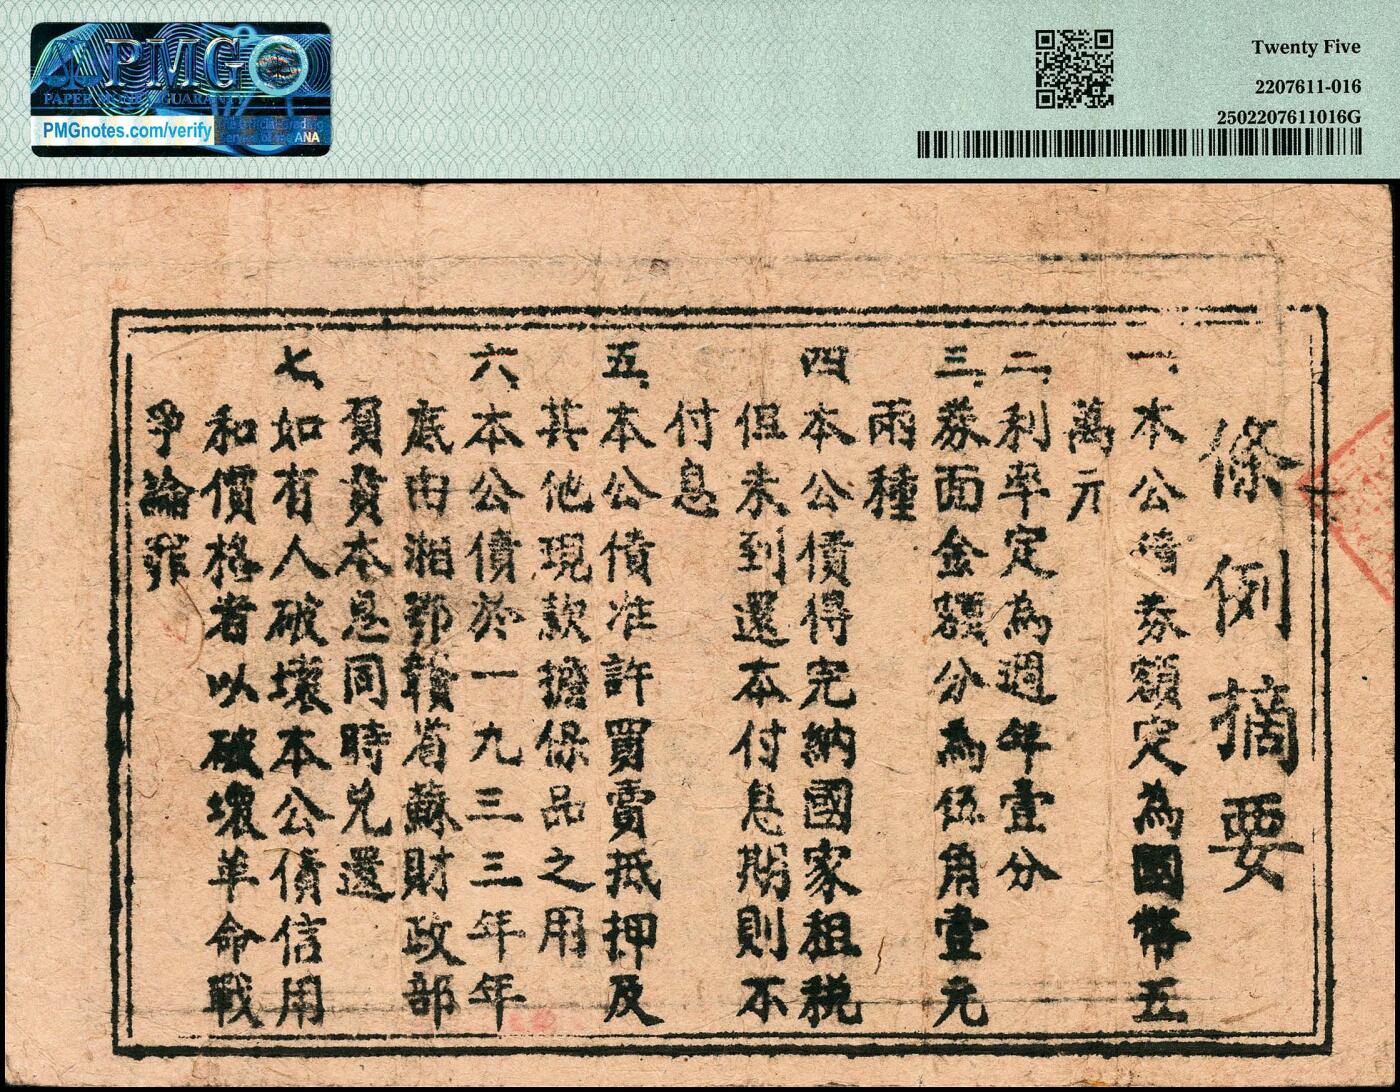 PMG
PAPER MONEY GUARANTY
PMGnotes.com/verify
ANA
Twenty Five
2207611-016
2502207611016G
條例摘要
一、本公債券額定為國幣五
萬元
二、利率定為週年壹分
三、券面金額分為伍角壹元
兩種
四、本公債得完納國家租稅
但未到還本付息期則不
付息
五、本公債准許買賣抵押及
其他現款擔保品之用
六、本公債於一九三三年年
底由湘鄂贛省蘇財政部
負責本息同時兌還
七、如有人破壞本公債信用
和價格者以破壞革命戰
爭論罪